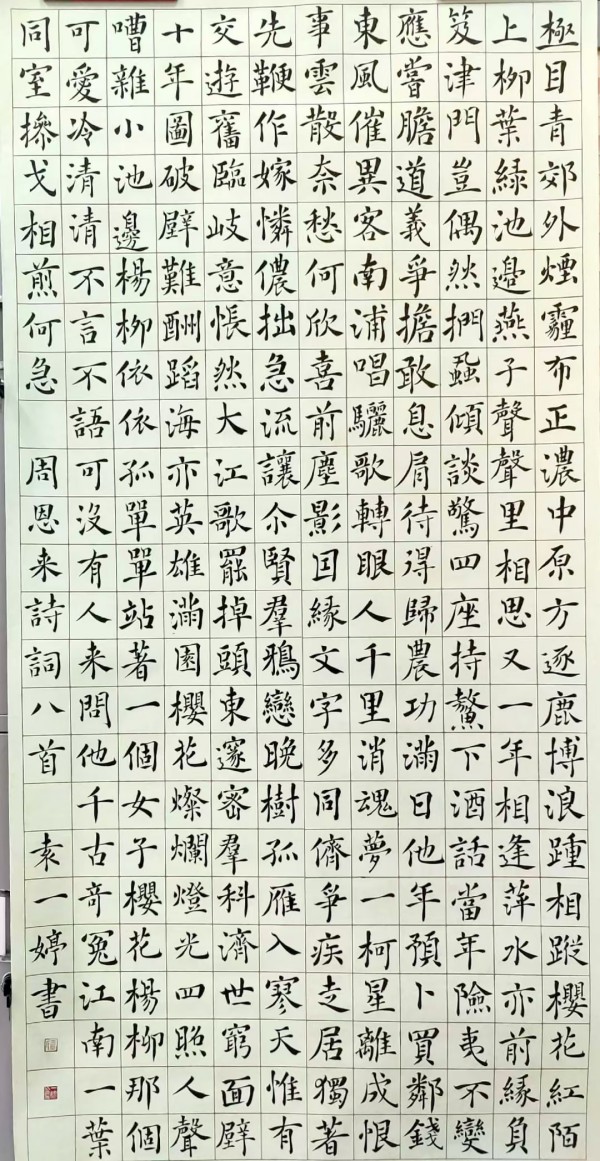 極目青郊外煙霾布正濃中原方逐鹿博浪踵相蹤櫻花紅陌
上柳葉綠池邊燕子聲聲里相思又一年相逢萍水亦前緣負
笈津門豈偶然捫蝨傾談驚四座持螯下酒話當年險夷不變
應嘗膽道義爭擔敢息肩待得歸農功滿日他年預卜買鄰錢
東風催異客南浦唱驪歌轉眼人千里消魂夢一柯星離成恨
事雲散奈愁何欣喜前塵影因緣文字多同儕爭疾走居獨著
先鞭作嫁憐儂拙急流讓尒賢羣鴉戀晚樹孤雁入寥天惟有
交遊舊臨岐意悵然大江歌罷掉頭東邃密羣科濟世窮面壁
十年圖破壁難酬蹈海亦英雄滿園櫻花燦爛燈光四照人聲
嘈雜小池邊楊柳依依孤單單站著一個女子櫻花楊柳那個
可愛冷清清不言不語可沒有人来問他千古奇冤江南一葉
同室操戈相煎何急 周恩来詩詞八首 袁一婷書